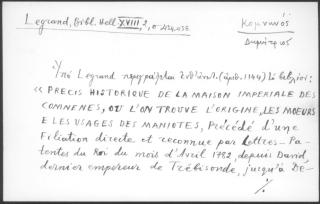 Legrand, Bibl. Hell XVIII, 2, σ 424-425
Κομνηνός
Δημήτριος
Ὑπὸ Legrand περιγράφεται (ἀριθ. 1144) τὸ βιβλίον:
« PRECIS HISTORIQUE DE LA MAISON IMPERIALE DES
COMNENES, OÙ L'ON TROUVE L'ORIGINE, LES MOEURS
E LES USAGES DES MANIOTES, Précédé d'une
Filiation directe et reconnue par Lettres-Pa-
tentes du Roi du mois d'Avril 1782, depuis David,
dernier empereur de Trébisonde, jusqu'à Dé-